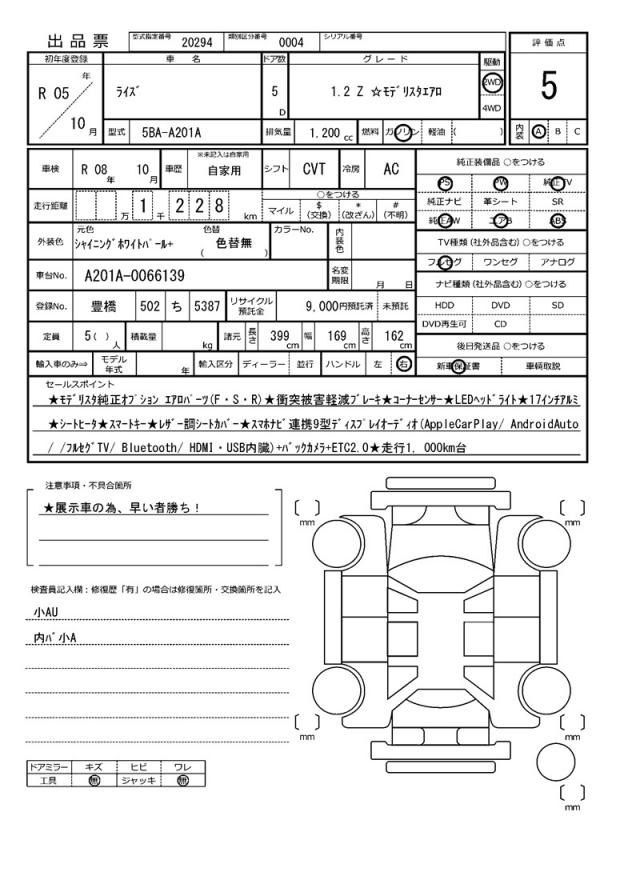 出品票 型式指定番号 20294 類別区分番号 0004 シリアル番号
評価点
初年度登録 車名 ドア数 グレード 駆動
R 05 年 10 月 ﾗｲｽﾞ 5 D 1.2 Z ☆ﾓﾃﾞﾘｽﾀｴｱﾛ 2WD 4WD 5
型式 5BA-A201A 排気量 1,200 cc 燃料 ガソリン 軽油 ( ) 内装 A B C
車検 R 08 年 10 月 車歴 ※未記入は自家用 自家用 シフト CVT 冷房 AC
純正装備品 ○をつける
PS PW 純正TV
純正ナビ 革シート SR
純正AW エアB ABS
走行距離 万 1 千 2 2 8 km
○をつける
マイル $ (交換) * (改ざん) # (不明)
外装色 元色 ｼｬｲﾆﾝｸﾞﾎﾜｲﾄﾊﾟｰﾙ+ 色替 ( 色替無 ) カラーNo. 内装色
TV種類 (社外品含む) ○をつける
フルセグ ワンセグ アナログ
車台No. A201A-0066139 名変期限 月 日
ナビ種類 (社外品含む) ○をつける
HDD DVD SD
DVD再生可 CD
登録No. 豊橋 502 ち 5387 リサイクル預託金 9,000円預託済 未預託
定員 5( ) 人 積載量 kg 諸元 長さ 399 cm 幅 169 cm 高さ 162 cm
後日発送品 ○をつける
新車保証書 車輌取説
輸入車のみ⇒ モデル年式 年 輸入区分 ディーラー 並行 ハンドル 左 右
セールスポイント
★ﾓﾃﾞﾘｽﾀ純正ｵﾌﾟｼｮﾝ ｴｱﾛﾊﾟｰﾂ(F・S・R)★衝突被害軽減ﾌﾞﾚｰｷ★ｺｰﾅｰｾﾝｻｰ★LEDﾍｯﾄﾞﾗｲﾄ★17ｲﾝﾁｱﾙﾐ
★ｼｰﾄﾋｰﾀ★ｽﾏｰﾄｷｰ★ﾚｻﾞｰ調ｼｰﾄｶﾊﾞｰ★ｽﾏﾎﾅﾋﾞ連携9型ﾃﾞｨｽﾌﾟﾚｲｵｰﾃﾞｨｵ(AppleCarPlay/ AndroidAuto
/ /ﾌﾙｾｸﾞTV/ Bluetooth/ HDMI・USB内臓)+ﾊﾞｯｸｶﾒﾗ+ETC2.0★走行1, 000km台
注意事項・不具合箇所
★展示車の為、早い者勝ち！
検査員記入欄：修復歴「有」の場合は修復箇所・交換箇所を記入
小AU
内ﾊﾞ小A
〔 〕 mm
〔 〕 mm
〔 〕 mm
〔 〕 mm
〔 〕 mm
ドアミラー キズ ヒビ ワレ
工具 無 ジャッキ 無